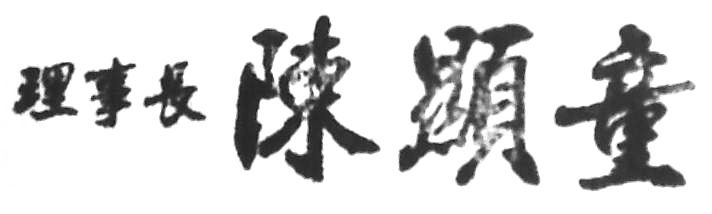 理事長 陳顕童